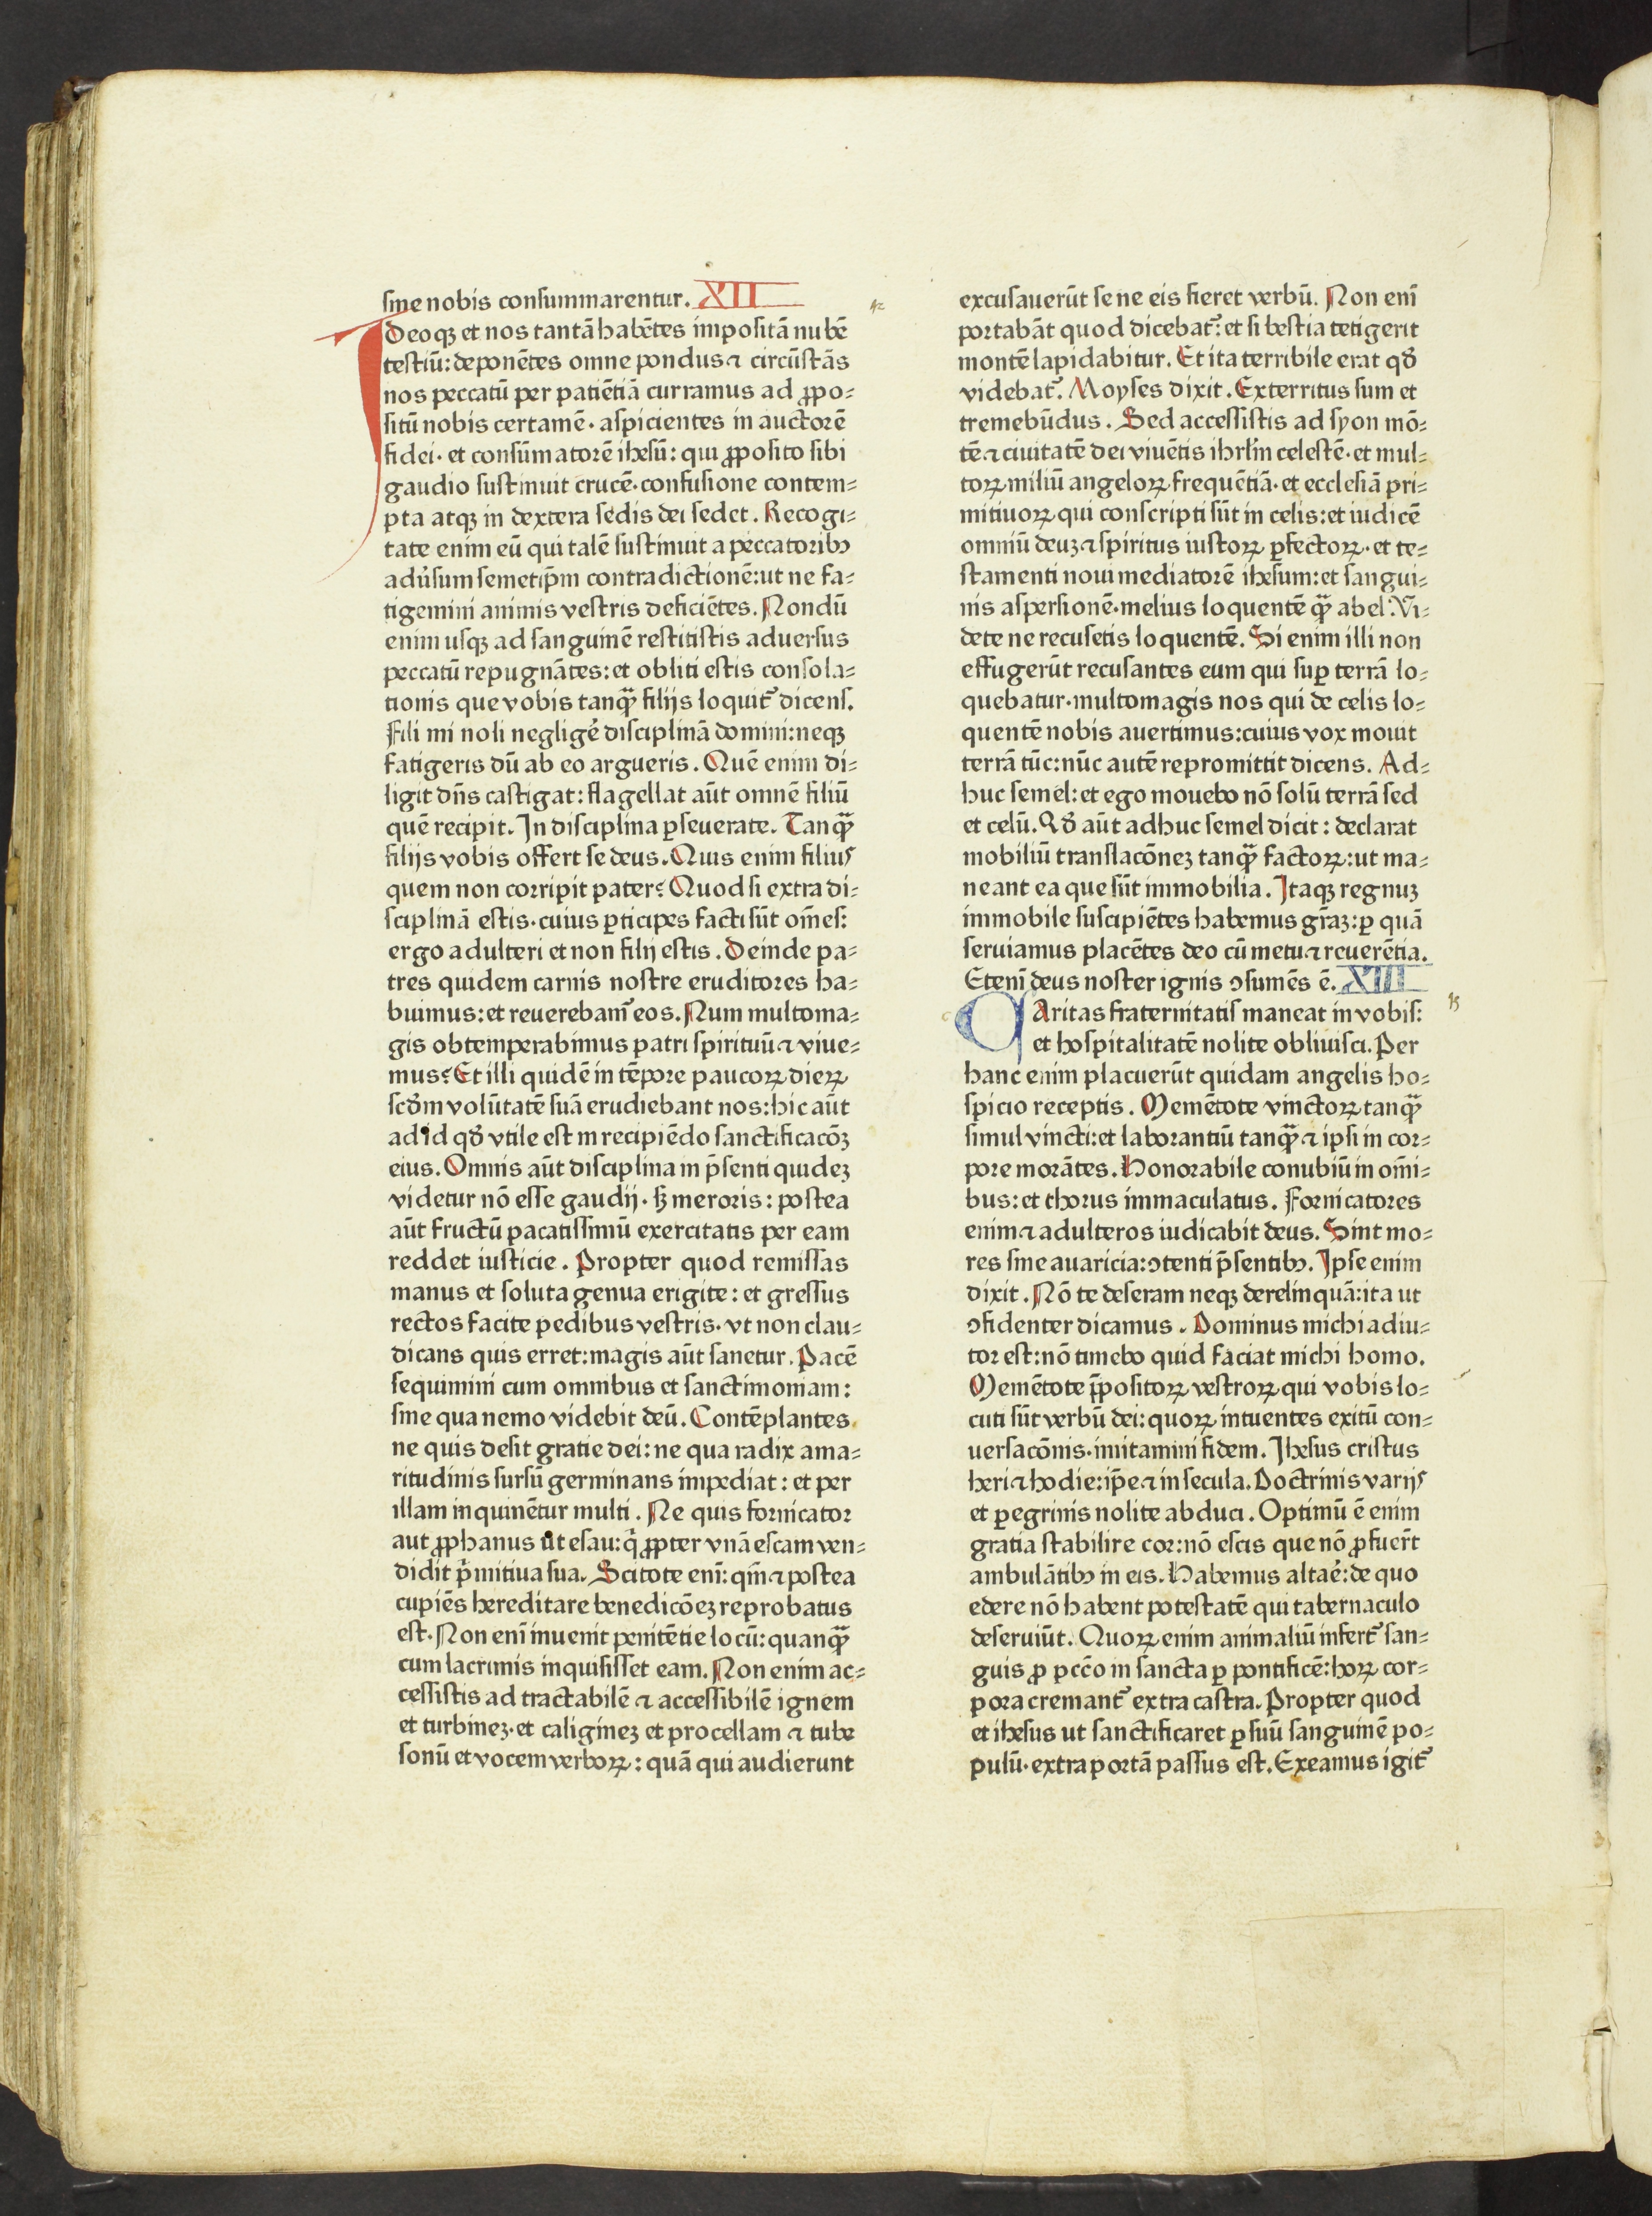 sine nobis consummarentur. XII
Ideoqꝫ et nos tantā habētes impositā nubē
testiū: deponētes omne pondus ⁊ circūstās
nos peccatū per patiētiā curramus ad ꝓpo⸗
sitū nobis certamē· aspicientes in auctorē
fidei· et consūmatorē ihesū: qui ꝓposito sibi
gaudio sustinuit crucē· confusione contem⸗
pta atqꝫ in dextera sedis dei sedet. Recogi⸗
tate enim eū qui talē sustinuit a peccatoribꝰ
adu̓sum semetip̄m contradictionē: ut ne fa⸗
tigemini animis vestris deficiētes. Nondū
enim usqꝫ ad sanguinē restitistis aduersus
peccatū repugnātes: et obliti estis consola⸗
tionis que vobis tanqꝫ filijs loquit᷑ dicens.
Fili mi noli neglige̓ disciplinā domini: neqꝫ
fatigeris dū ab eo argueris. Quē enim di⸗
ligit dn̄s castigat: flagellat aūt omnē filiū
quē recipit. In disciplina ꝑseuerate. Tanqꝫ
filijs vobis offert se deus. Quis enim filius
quem non corripit pater? Quod si extra di⸗
sciplinā estis· cuius ꝑticipes facti sūt om̄es:
ergo adulteri et non filij estis. Deinde pa⸗
tres quidem carnis nostre eruditores ha⸗
buimus: et reuerebam̄ eos. Num multoma⸗
gis obtemperabimus patri spirituū ⁊ viue⸗
mus? Et illi quidē in tēpore paucoꝝ dieꝝ
scd̄m volūtatē suā erudiebant nos: hic aūt
ad id qd̄ vtile est in recipiēdo sanctificacōꝫ
eius. Omnis aūt disciplina in p̄senti quideꝫ
videtur nō esse gaudij· sꝫ meroris: postea
aūt fructū pacatissimū exercitatis per eam
reddet iusticie. Propter quod remissas
manus et soluta genua erigite: et gressus
rectos facite pedibus vestris· vt non clau⸗
dicans quis erret: magis aūt sanetur. Pacē
sequimini cum omnibus et sanctimoniam:
sine qua nemo videbit deū. Contēplantes
ne quis desit gratie dei: ne qua radix ama⸗
ritudinis sursū germinans impediat: et per
illam inquinētur multi. Ne quis fornicator
aut ꝓphanus ut esau: q̄ ꝓpter vnā escam ven⸗
didit p̄mitiua sua. Scitote enī: qm̄ ⁊ postea
cupiēs hereditare benedicōeꝫ reprobatus
est. Non enī inuenit penitētie locū: quanqꝫ
cum lacrimis inquisisset eam. Non enim ac⸗
cessistis ad tractabilē ⁊ accessibilē ignem
et turbineꝫ· et caligineꝫ et procellam ⁊ tube
sonū et vocem verboꝝ: quā qui audierunt
excusauerūt se ne eis fieret verbū. Non enī
portabāt quod dicebat᷑: et si bestia tetigerit
montē lapidabitur. Et ita terribile erat qd̄
videbat᷑. Moyses dixit. Exterritus sum et
tremebūdus. Sed accessistis ad syon mō⸗
tē ⁊ ciuitatē dei viuētis ihrl̄m celestē· et mul⸗
toꝝ miliū angeloꝝ frequētiā· et ecclesiā pri⸗
mitiuoꝝ qui conscripti sūt in celis: et iudicē
omniū deuꝫ ⁊ spiritus iustoꝝ ꝑfectoꝝ· et te⸗
stamenti noui mediatorē ihesum: et sangui⸗
nis aspersionē· melius loquentē qꝫ abel. Vi⸗
dete ne recusetis loquentē. Si enim illi non
effugerūt recusantes eum qui suꝑ terrā lo⸗
quebatur· multomagis nos qui de celis lo⸗
quentē nobis auertimus: cuius vox mouit
terrā tūc: nūc autē repromittit dicens. Ad⸗
huc semel: et ego mouebo nō solū terrā sed
et celū. Qd̄ aūt adhuc semel dicit: declarat
mobiliū translacōneꝫ tanqꝫ factoꝝ: ut ma⸗
neant ea que sūt immobilia. Itaqꝫ regnuꝫ
immobile suscipiētes habemus gr̄aꝫ: ꝑ quā
seruiamus placētes deo cū metu ⁊ reuerētia.
Etenī deus noster ignis ꝯsumēs ē. XIII
CAritas fraternitatis maneat in vobis:
et hospitalitatē nolite obliuisci. Per
hanc enim placuerūt quidam angelis ho⸗
spicio receptis. Memētote vinctoꝝ tanqꝫ
simul vincti: et laborantiū tanqꝫ ⁊ ipsi in cor⸗
pore morātes. Honorabile conubiū in om̄i⸗
bus: et thorus immaculatus. Fornicatores
enim ⁊ adulteros iudicabit deus. Sint mo⸗
res sine auaricia: ꝯtenti p̄sentibꝰ. Ipse enim
dixit. Nō te deseram neqꝫ derelinquā: ita ut
ꝯfidenter dicamus. Dominus michi adiu⸗
tor est: nō timebo quid faciat michi homo.
Memētote p̄positoꝝ vestroꝝ qui vobis lo⸗
cuti sūt verbū dei: quoꝝ intuentes exitū con⸗
uersacōnis· imitamini fidem. Ihesus cristus
heri ⁊ hodie: ip̄e ⁊ in secula. Doctrinis varijs
et ꝑegrinis nolite abduci. Optimū ē enim
gratia stabilire cor: nō escis que nō ꝓfuer̄t
ambulātibꝰ in eis. Habemus altare̓: de quo
edere nō habent potestatē qui tabernaculo
deseruiūt. Quoꝝ enim animaliū infert᷑ san⸗
guis ꝓ pcc̄o in sancta ꝑ pontificē: hoꝝ cor⸗
pora cremant᷑ extra castra. Propter quod
et ihesus ut sanctificaret ꝑ suū sanguinē po⸗
pulū· extra portā passus est. Exeamus igit᷑